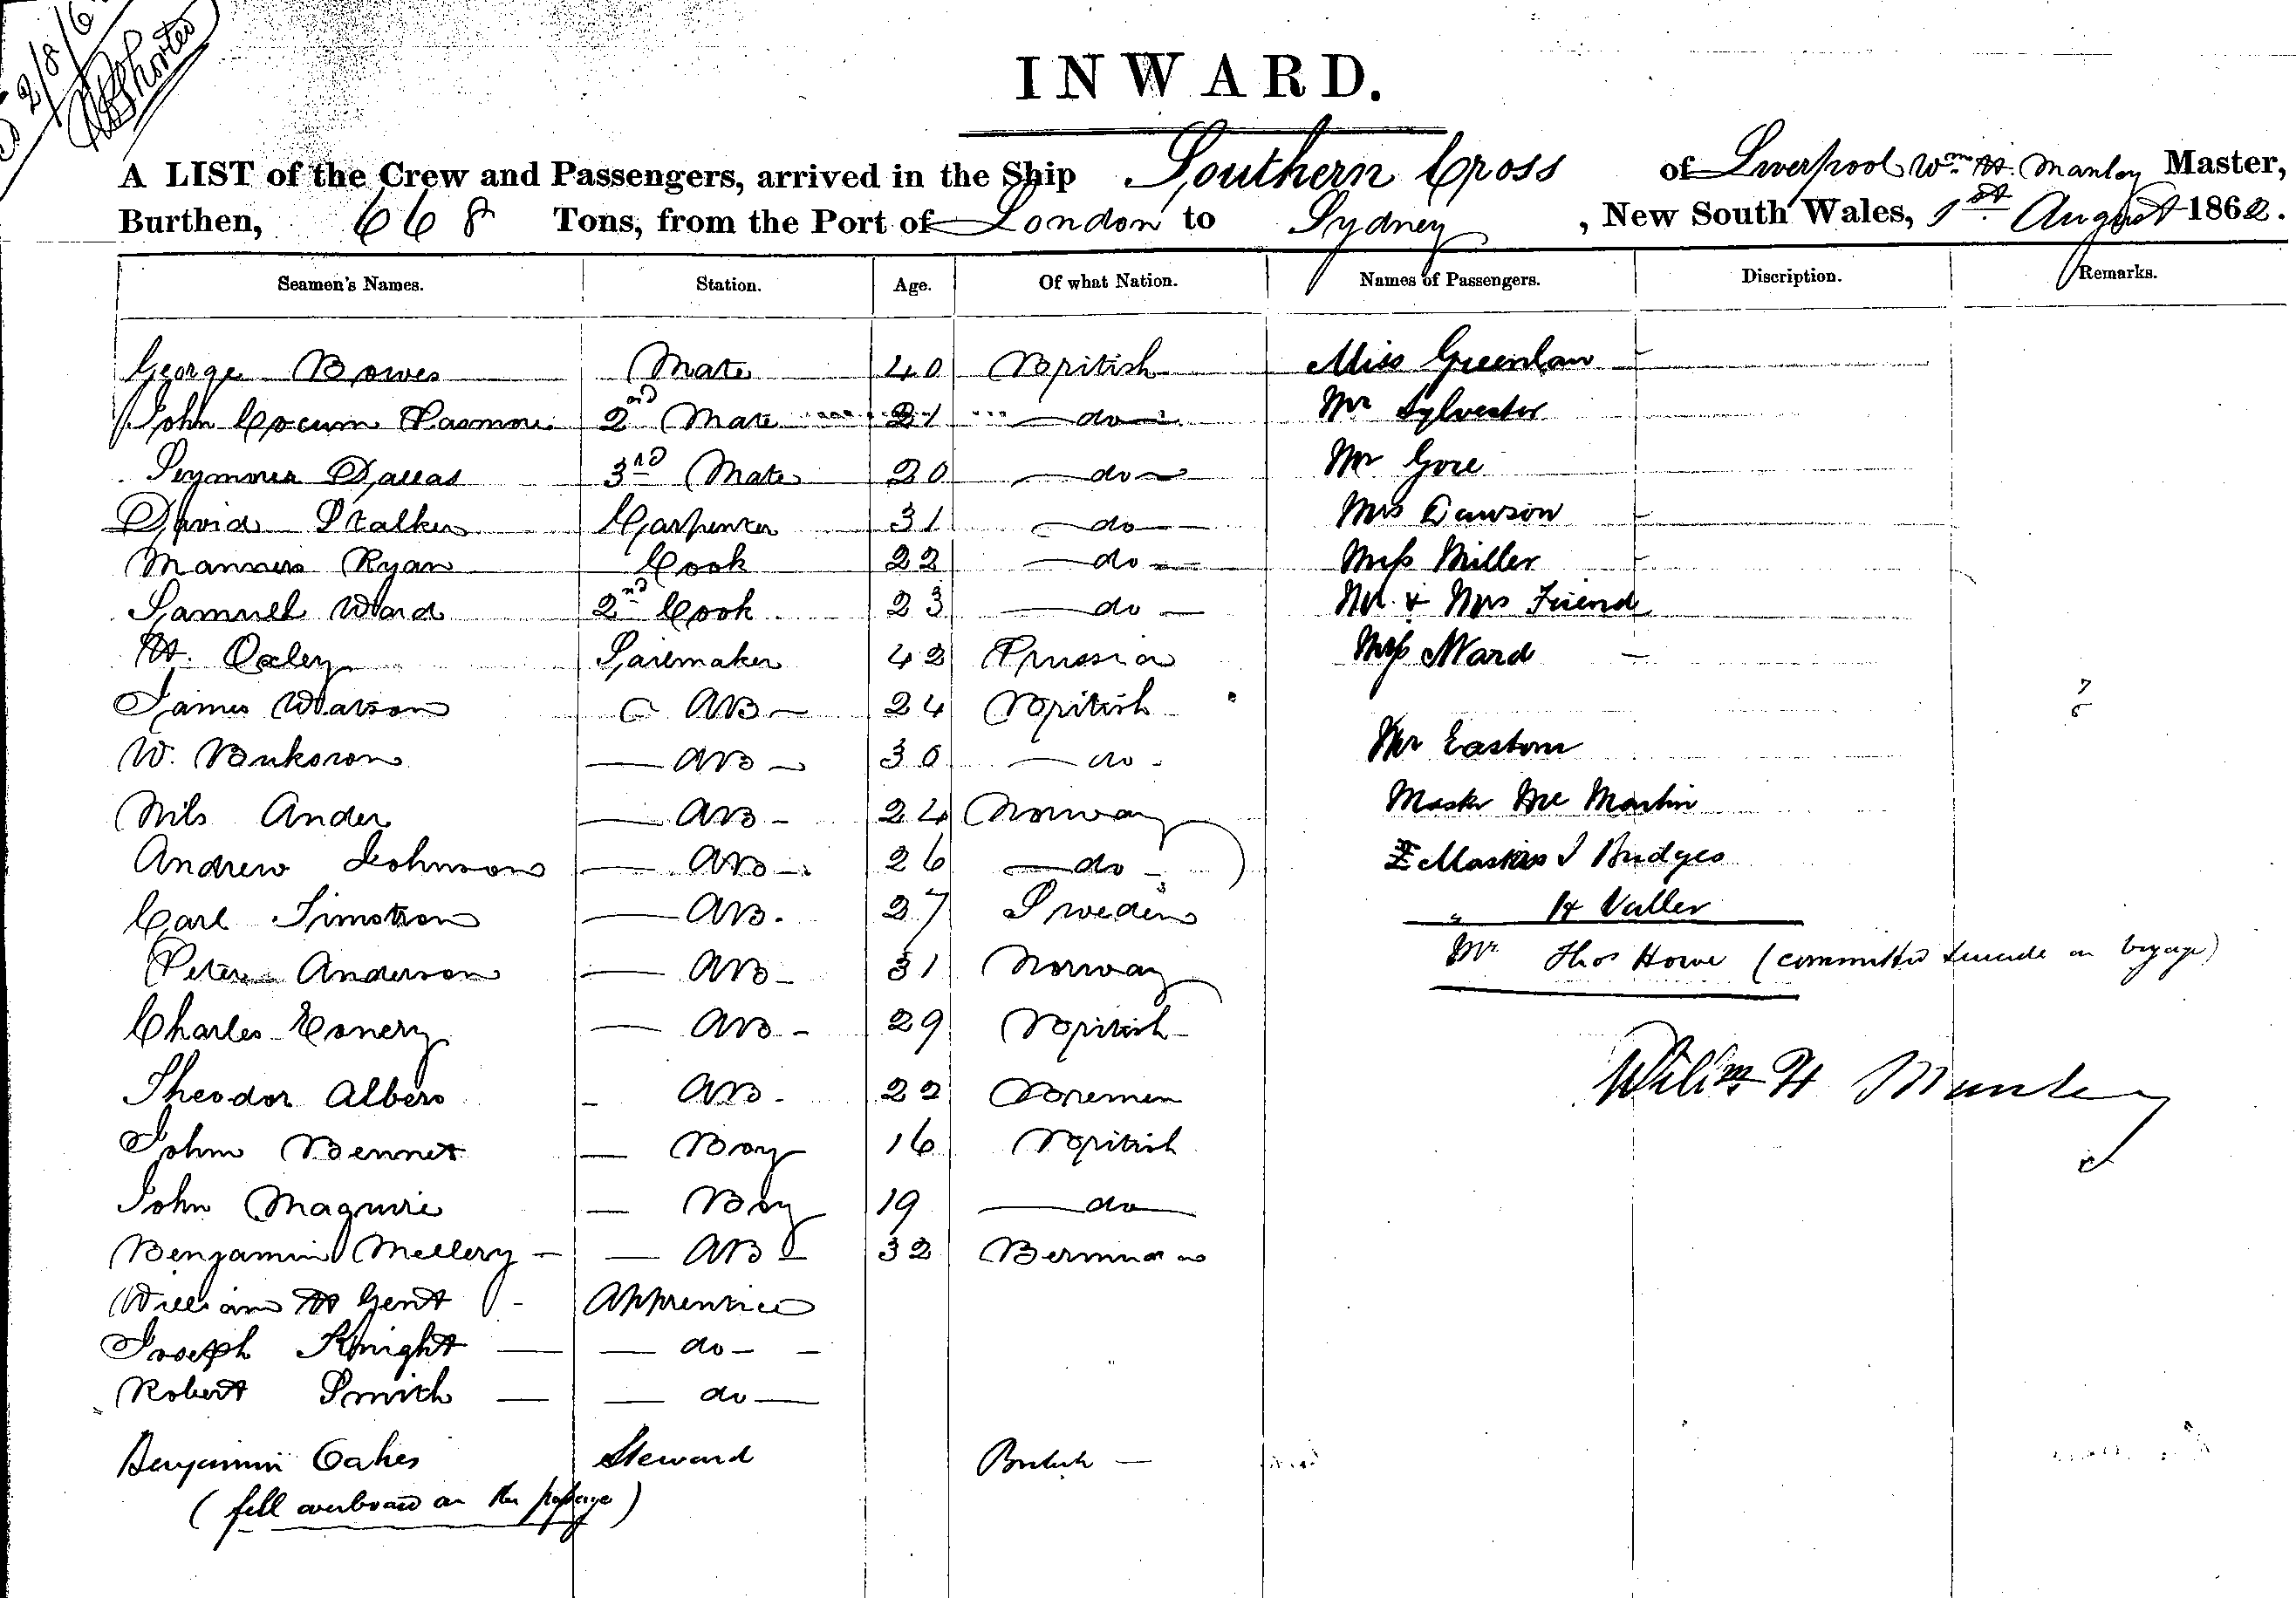 2/8/6
INWARD.
A LIST of the Crew and Passengers, arrived in the Ship Southern Cross of Liverpool Wm. H. Manley Master,
Burthen, 668 Tons, from the Port of London to Sydney, New South Wales, 1st August 1862.
Seamen's Names. Station. Age. Of what Nation. Names of Passengers. Discription. Remarks.
George Bowes Mate 40 British Miss Greenlaw
John Cocum Pasmore 2nd Mate 21 do Mr Sylvester
Seymour Dallas 3rd Mate 20 do Mr Gore
David Stalker Carpenter 31 do Mrs Dawson
Manners Ryan Cook 22 do Miss Miller
Samuel Ward 2nd Cook 23 do Mr & Mrs Friend
H. Oxley Sailmaker 42 Prussia Miss Ward
James Watson AB 24 British
W. AB 30 do Mr Eastom
Nils Ander AB 24 Norway Master Mc Martin
Andrew Johnson AB 26 do Masters J Bridges
Carl Timstrom AB. 27 Sweden " H Valler
Peter Anderson AB 31 Norway Mr Thos Howe (committed suicide on voyage)
Charles AB 29 British
Willm H Manley
Theodor Albers AB 22 Bremen
John Bennet Boy 16 British
John Maguire Boy 19 do
Benjamin Mellery AB 32 Bermuda
William H Gent Apprentice
Joseph Knight do
Robert Smith do
Benjamin Oakes Steward British
(fell overboard on the passage)